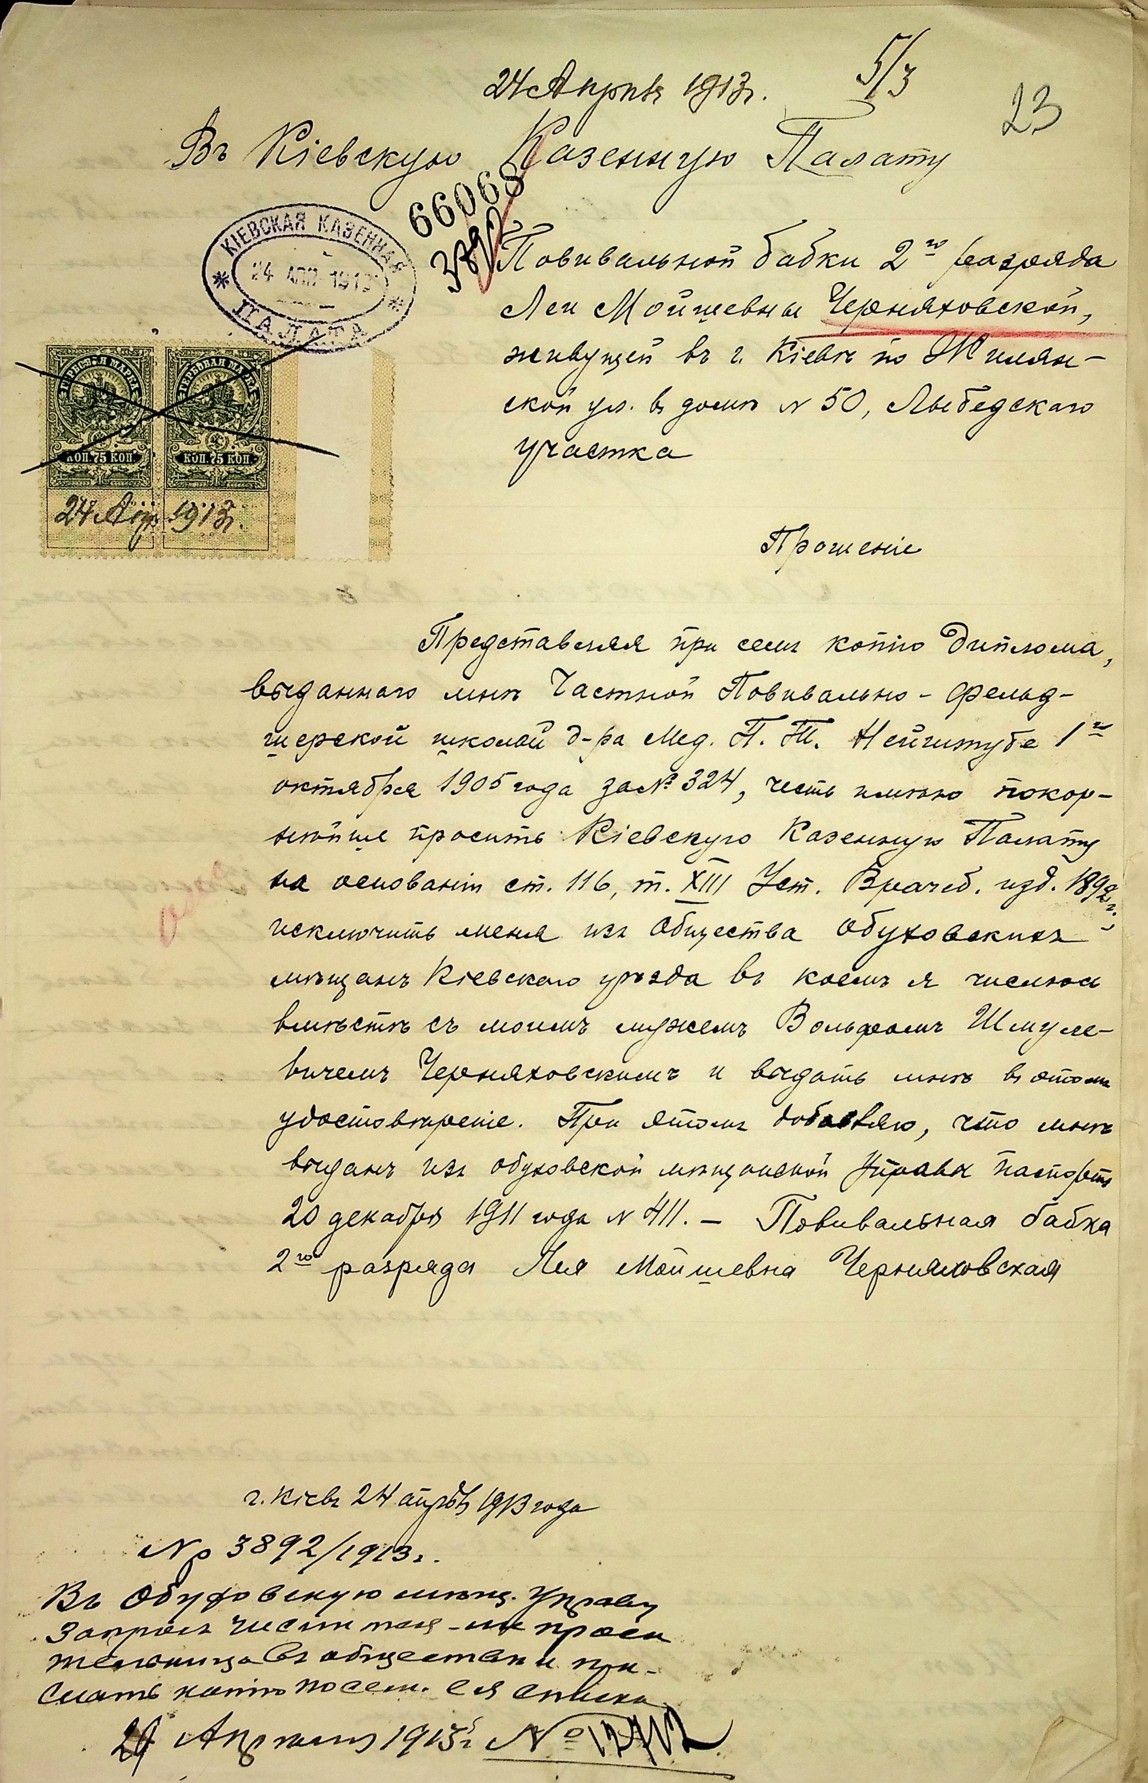 24 Апрѣля 1913г.
5/3
23
Въ Кіевскую Казенную Палату
66068
КІЕВСКАЯ КАЗЕННАЯ
24 АПР 1913
ПАЛАТА
Повивальной бабки 2го разряда
Леи Мойшевны Черняховской,
живущей въ г. Кіевѣ по Жилян-
ской ул. въ домѣ № 50, Лыбедскаго
участка
ГЕРБОВАЯ МАРКА
ГЕРБОВАЯ МАРКА
КОП. 75 КОП.
КОП. 75 КОП.
24 Апр. 1913г.
Прошеніе
Представляя при семъ копію диплома,
выданнаго мнѣ Частной Повивально-фельд-
шерской школой д-ра Мед. П. Т. Нейштубе 1го
октября 1905 года за № 324, честь имѣю покор-
нѣйше просить Кіевскую Казенную Палату
на основаніи ст. 116, т. XIII Уст. Врачеб. изд. 1892 г.
исключить меня изъ общества обуховскихъ
мѣщанъ Кіевскаго уѣзда въ коемъ я числюсь
вмѣстѣ съ моимъ мужемъ Вольфомъ Шмуле-
вичемъ Черняховскимъ и выдать мнѣ въ этомъ
удостовѣреніе. При этомъ добавляю, что мнѣ
выданъ изъ обуховской мѣщанской Управы паспортъ
20 декабря 1911 года № 411. — Повивальная бабка
2го разряда Лея Мойшевна Черняховская
г. Кіевъ 24 апрѣля 1913 года
№ 3892/1913г.
Въ Обуховскую мѣщ. Управу
Запросъ числится-ли проси
тельница въ обществѣ и при-
слать копію посем. ея списка
Апрѣля 1913г. №